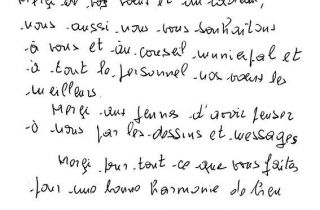 Merci et vos vœux et un cadeau,
nous aussi nous vous souhaitons
à vous et au conseil municipal et
à tout le personnel nos vœux les
meilleurs.
Merci aux jeunes d'avoir penser
à nous par les dessins et messages
Merci pour tout ce que vous faites
pour une bonne harmonie de lieu